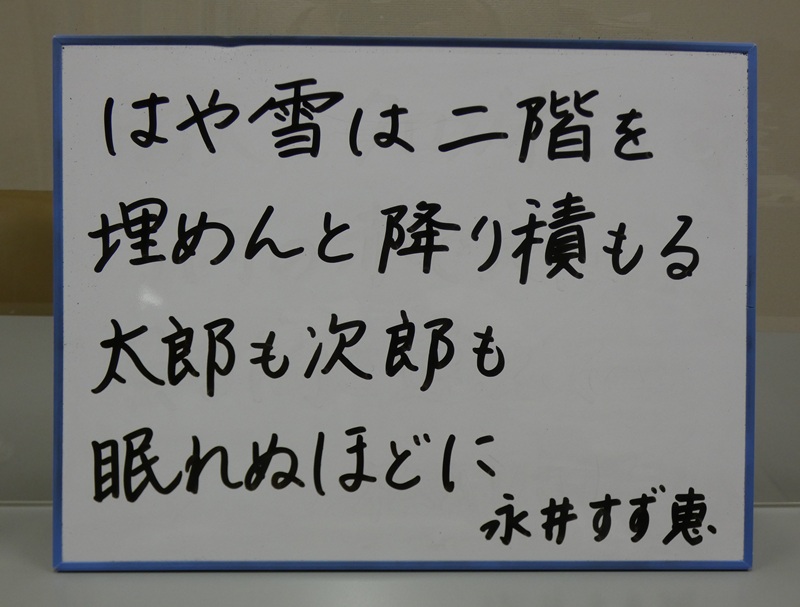 はや雪は二階を
埋めんと降り積もる
太郎も次郎も
眠れぬほどに
永井すず恵